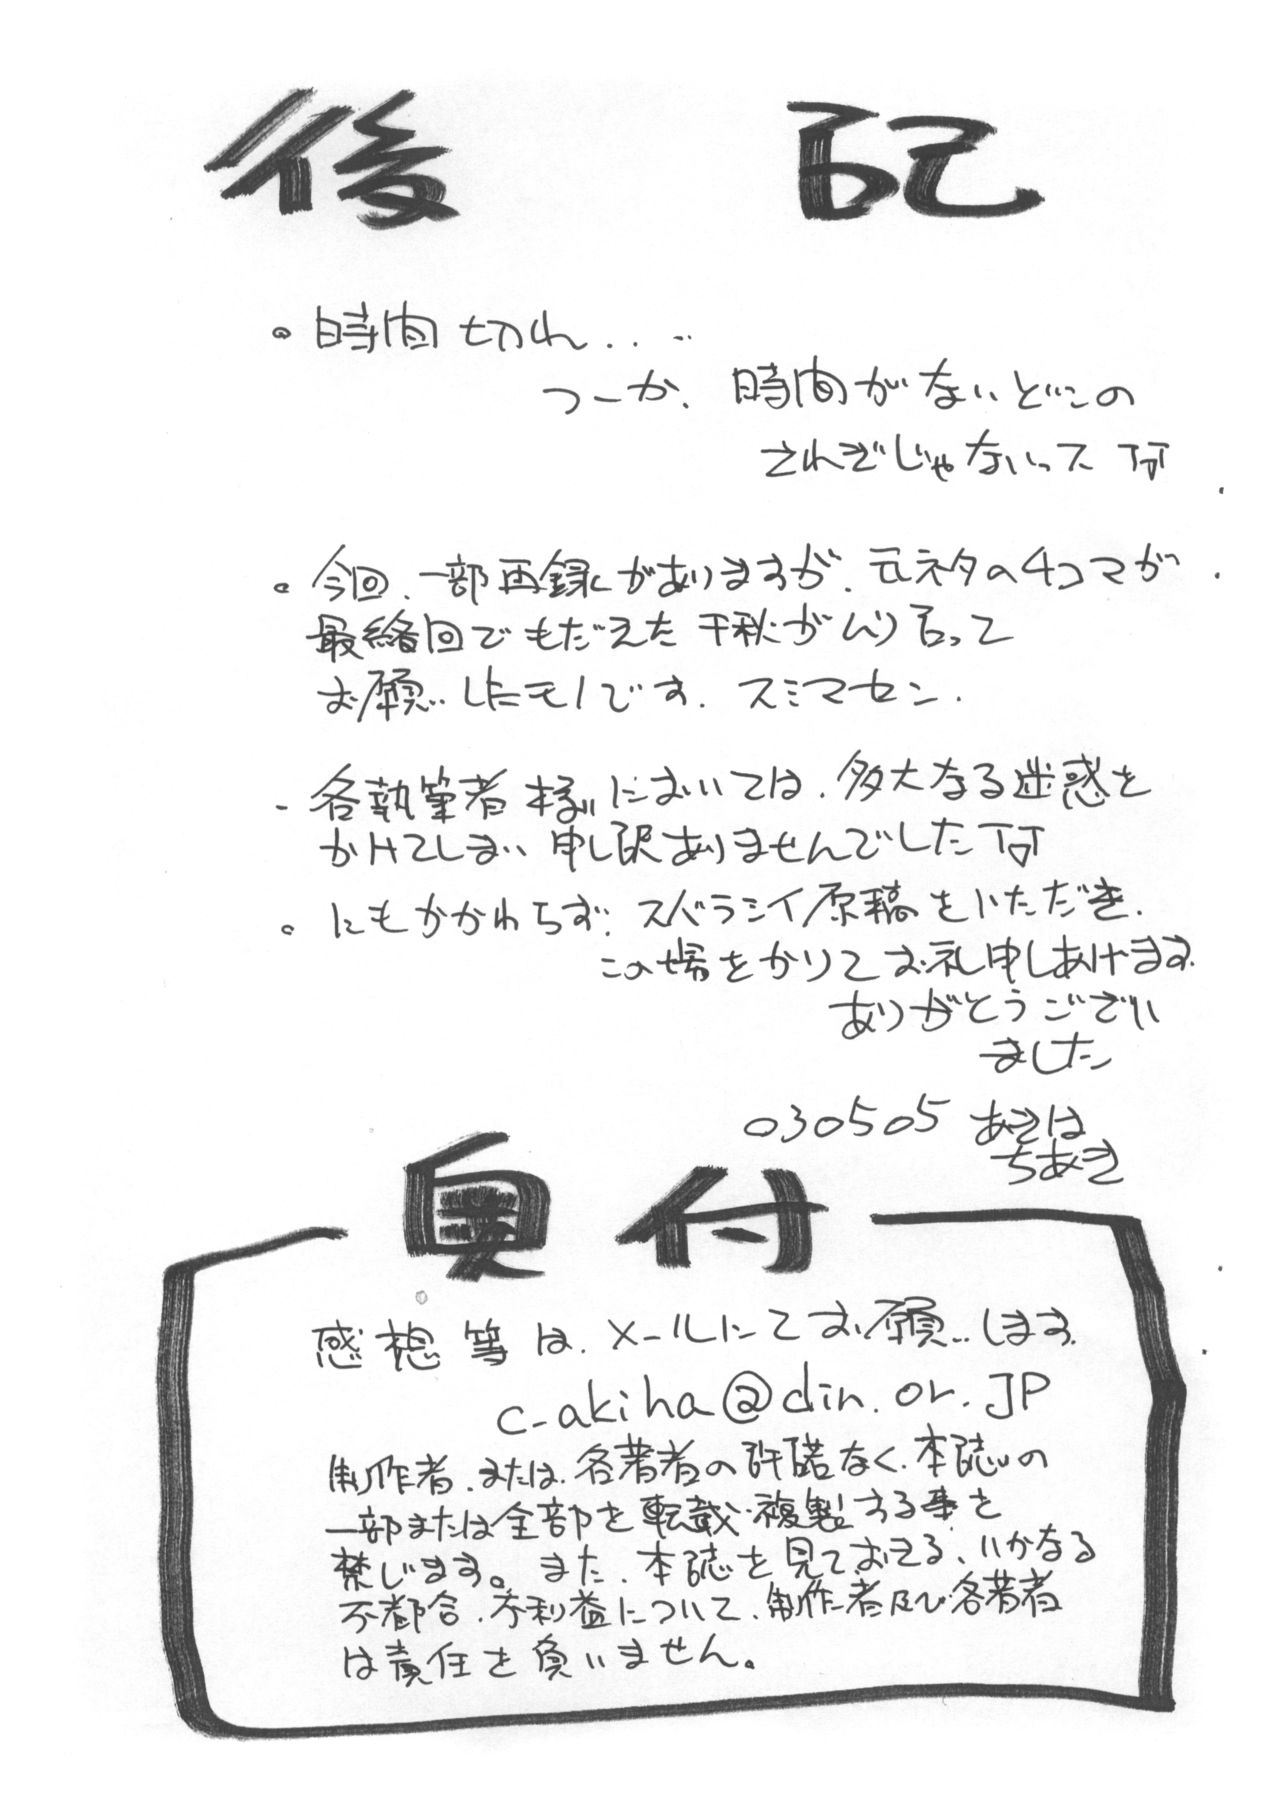 後記
。時間切れ...
つーか、時間がないどこの
さわぎじゃないってT_T
。今回、一部再録がありますが、元ネタの4コマが
最終回でもだえた千秋がムリ言って
お願いしたモノです。スミマセン.
- 各執筆者様においては、多大なる迷惑を
かけてしまい申し訳ありませんでしたT_T
。にもかかわらず、スバラシイ原稿をいただき、
この場をかりてお礼申しあげます。
ありがとうござい
ました
030505 あきは
ちあき
奥付
感想等は、メールにてお願いします。
c-akiha@din.or.JP
制作者、または、各著者の許諾なく、本誌の
一部または全部を転載・複製する事を
禁じます。また、本誌を見ておきる、いかなる
不都合、不利益について、制作者及び各著者
は責任を負いません。